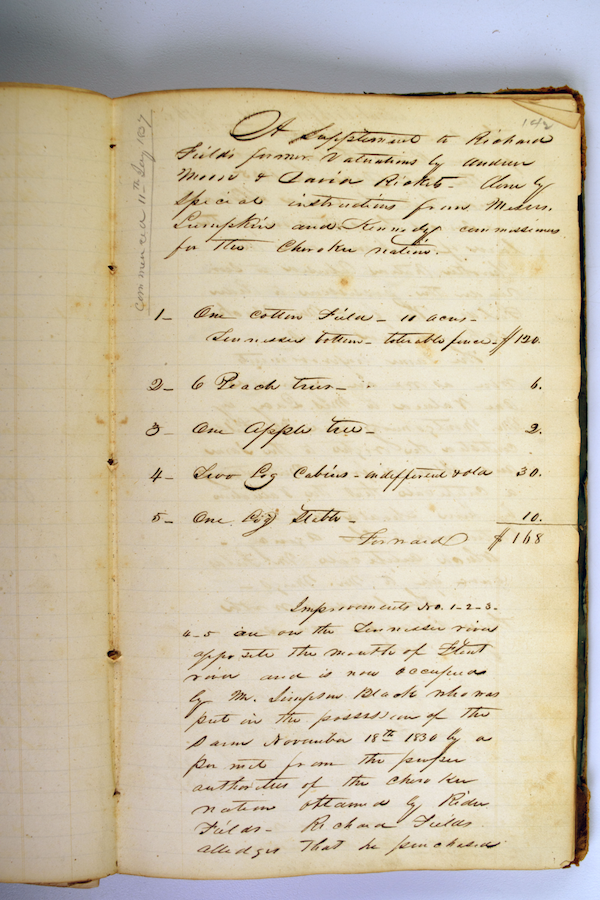 142
Commenced 11th Day 1837
A Supplement to Richard
Fields former Valuations by Andrew
Moore & David Rickets - done by
Special instructions from Messrs.
Lumpkin and Kennedy commissioners
for the Cherokee nation.
1- One cotton Field - 10 acres -
Tennessee bottom - tolerable fence - $120.
2- 6 Peach trees - 6.
3- One Apple tree - 2.
4- Two Log Cabins - indifferent & old 30.
5- One Log Stable - 10.
Forward $168
Improvements No. 1-2-3-
4-5 are on the Tennessee river
opposite the mouth of Flint
river and is now occupied
by Mr. Simpson Black who was
put in the possession of the
Same November 18th 1830 by a
permit from the proper
authorities of the Cherokee
nation obtained by Rider
Fields - Richard Fields
alledges that he purchased